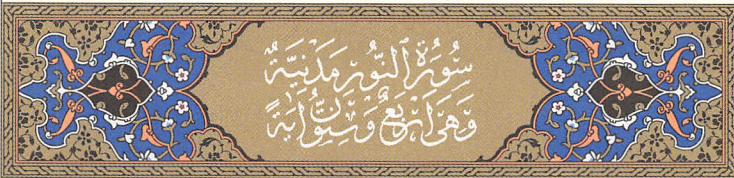 سُورَةُ ٱلنُّورِ مَدَنِيَّةٌ
وَهِىَ أَرْبَعٌ وَسِتُّونَ ايَةً